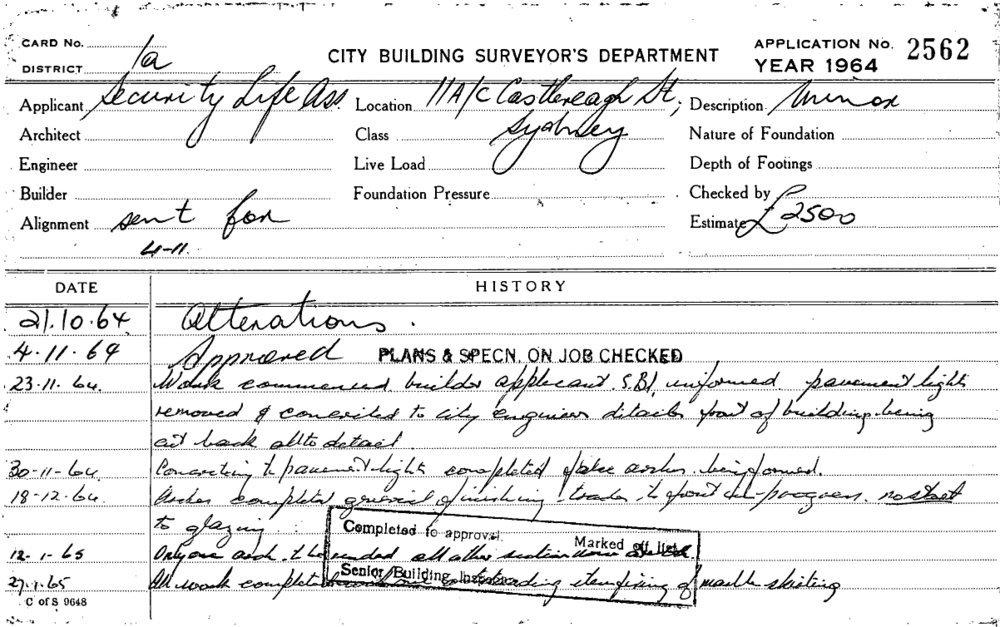 CARD No.
DISTRICT 1a
CITY BUILDING SURVEYOR'S DEPARTMENT
APPLICATION No. 2562
YEAR 1964
Applicant Security Life Ass. Location 11A/C Castlereagh St, Description Minor
Architect Class Sydney Nature of Foundation
Engineer Live Load Depth of Footings
Builder Foundation Pressure Checked by
Alignment sent for Estimate £2500
4-11.
DATE HISTORY
21.10.64 Alterations.
4.11.64 Approved PLANS & SPECN. ON JOB CHECKED
23.11.64. Work commenced builder applicant S.B.I. informed pavement lights
removed & concreted to city engineers details front of building being
cut back all to detail
30-11-64 Concreting to pavement lights completed false arches being formed.
18-12-64. Arches completed general finishing trades to front in progress. no start
to glazing
Completed to approval. Marked off list
12-1-65 Only one arch to be all other
Senior Building Inspector
27.1.65 All work completed outstanding item fixing of marble skirting
C of S 9648